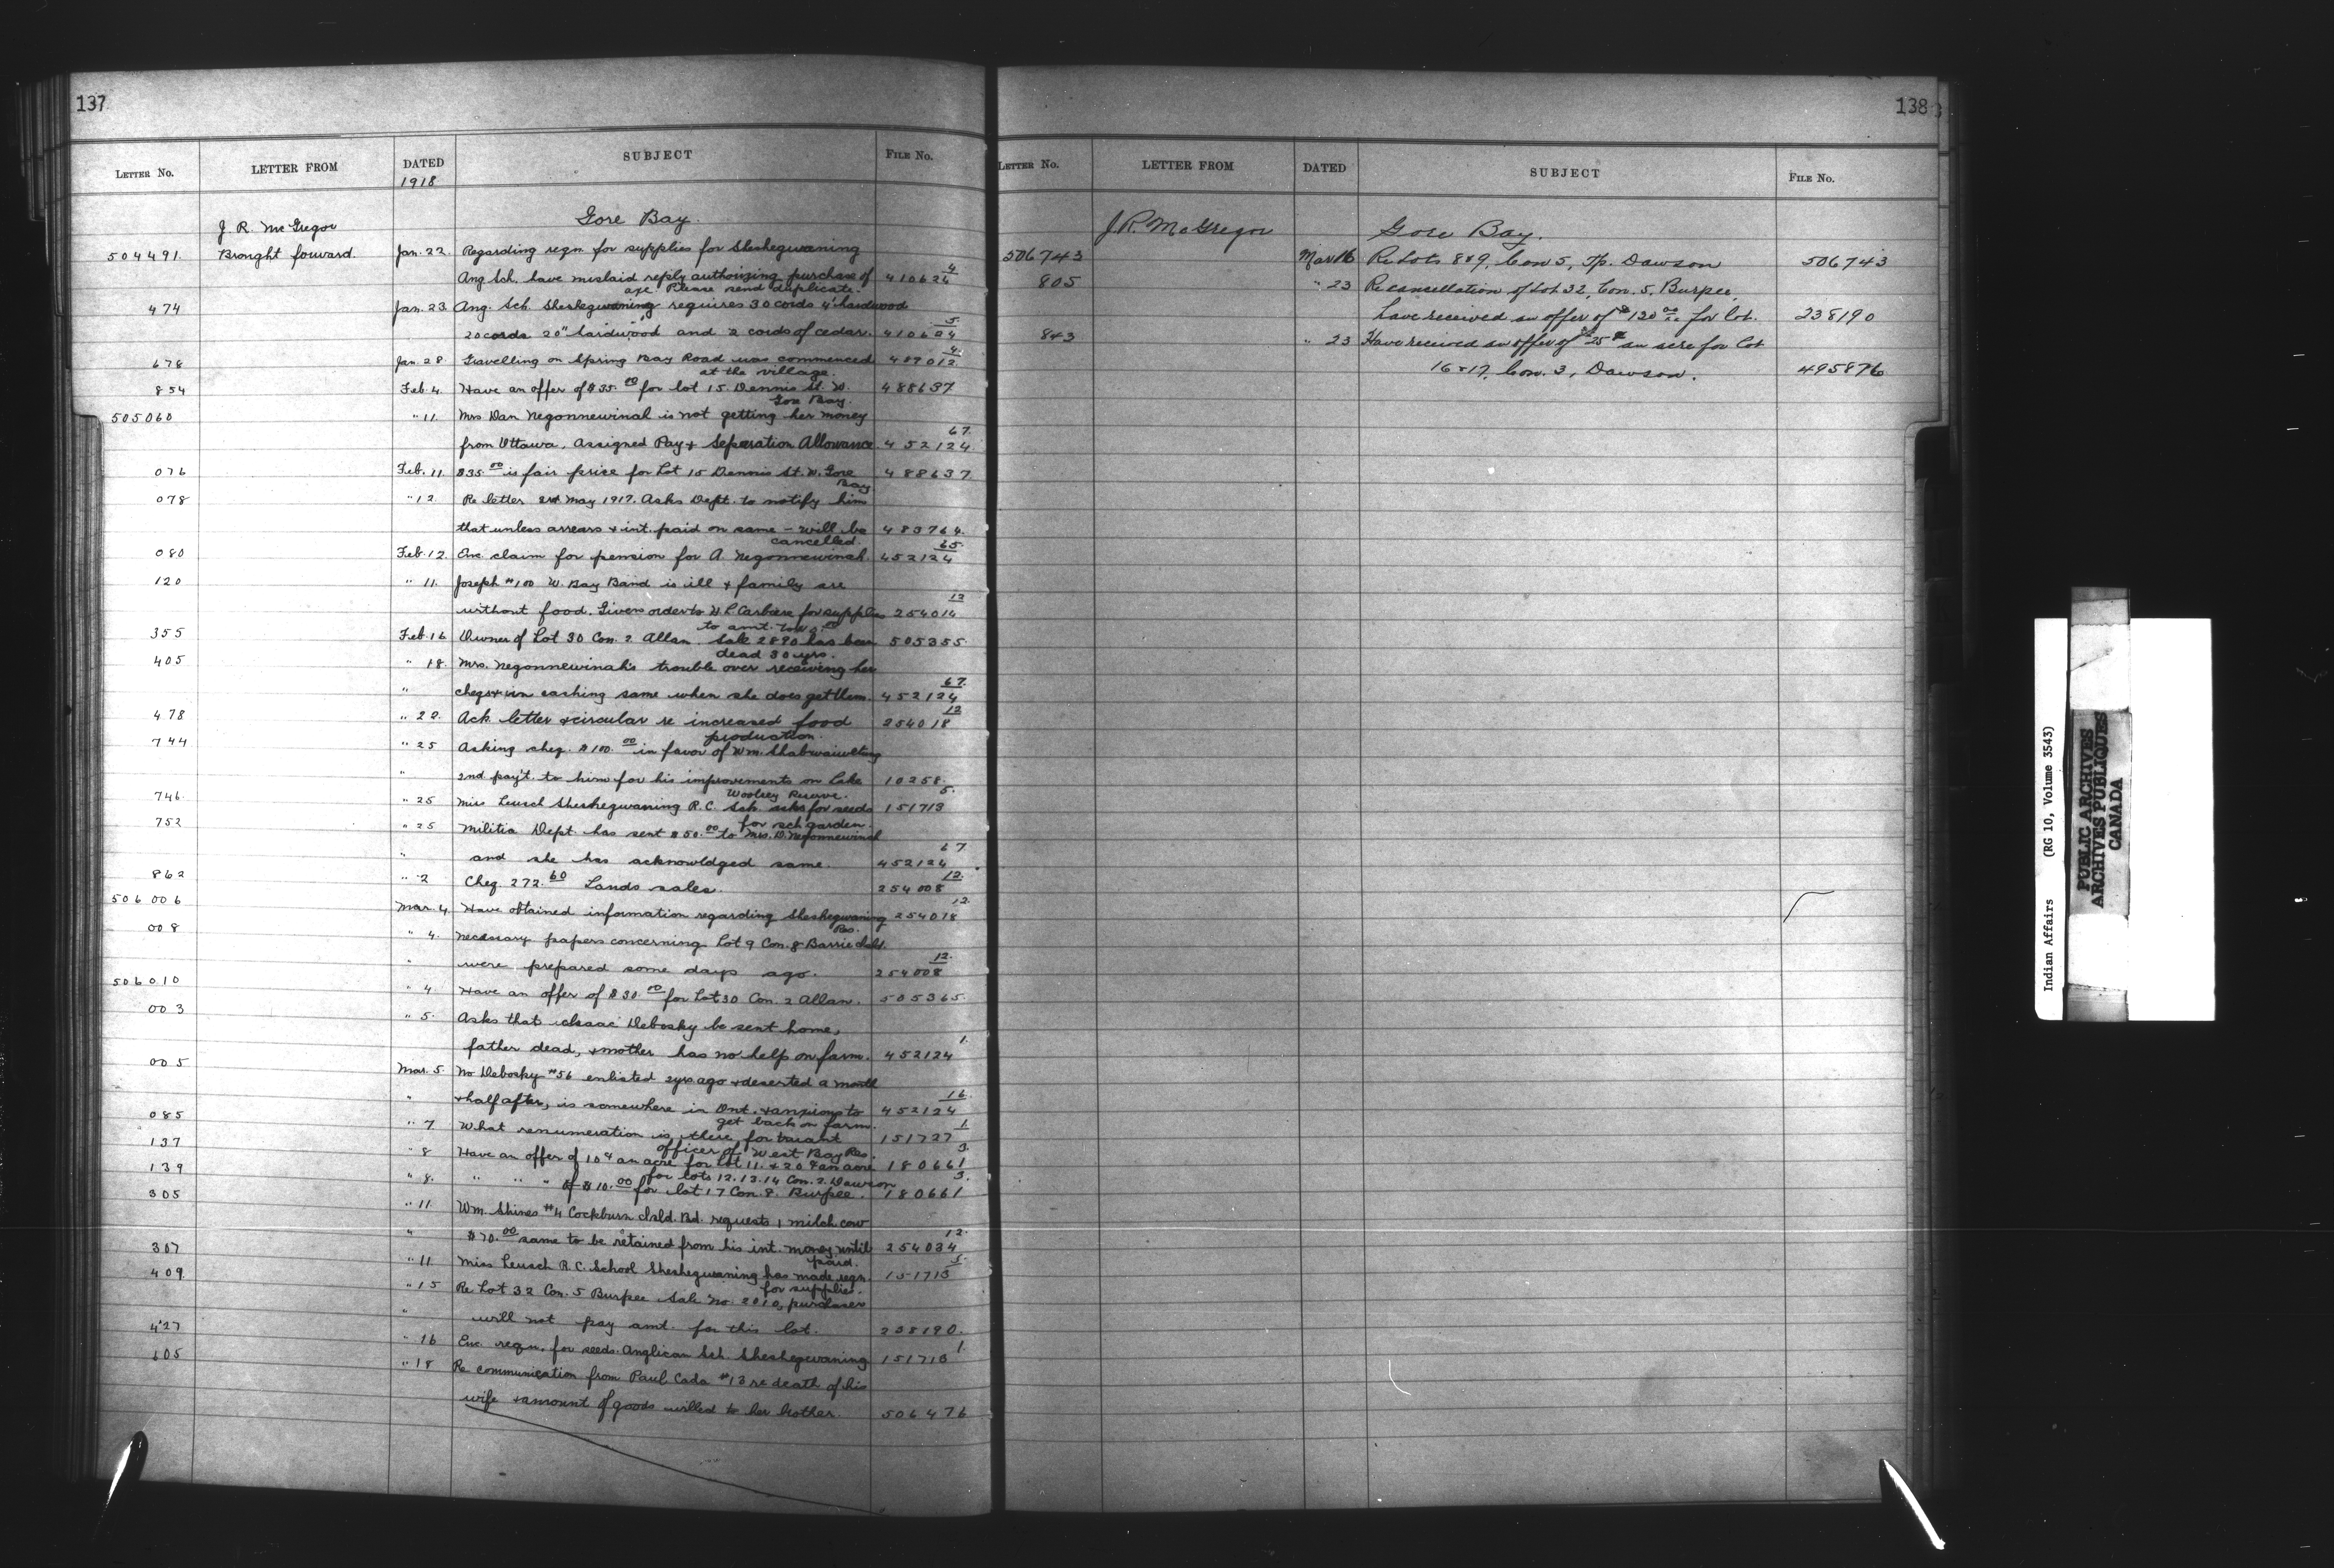 137
LETTER NO. LETTER FROM DATED SUBJECT FILE NO.
1918
J. R. McGregor Gore Bay.
504491. Brought forward. Jan. 22. Regarding reqn. for supplies for Sheshegwaning
Ang Sch. have mislaid reply authorizing purchase of 410624 4
axe Please send duplicate.
474 Jan. 23. Ang. Sch. Sheshegwaning requires 30 cords 4' hardwood
20 cords 20" hardwood and 2 cords of cedar. 410624 5.
678 Jan. 28. Gravelling on Spring Bay Road was commenced 489012. 4.
at the village.
854 Feb. 4. Have an offer of $35.00 for lot 15. Dennis St. W. 488637
Gore Bay.
505060 " 11. Mrs Dan Negonnewinal is not getting her money
from Ottawa, Assigned Pay & Separation Allowance. 452124. 67.
076 Feb. 11. $35.00 is fair price for Lot 15 Dennis St. W. Gore 488637.
Bay
078 " 12. Re letter May 1917. Asks Dept. to notify him
that unless arrears & int. paid on same - will be 483764.
cancelled.
080 Feb. 12. Enc. claim for pension for A. Negonnewinah. 452124 65.
120 " 11. Joseph #100 W. Bay Band is ill & family are
without food. Given order to for supplies 254014 12
to amt.
355 Feb. 16 Owner of Lot 30 Con. 2 Allan. Sale 2890 has been 505355.
dead 30 yrs.
405 " 18. Mrs. Negonnewinah's trouble over receiving her
" cheqs & in cashing same when she does get them. 452124 67.
478 " 22. Ack letter & circular re increased food 254018 12
production.
744 " 25 Asking cheq. $100.00 in favor of Wm.
" 2nd pay't. to him for his improvements on Lake 10258.
Woolsey Reserve.
746. " 25 Miss Leusch Sheshegwaning R.C. Sch. asks for seeds 151713 5.
for sch garden.
752 " 25 Militia Dept. has sent $50.00 to Mrs. D. Negonnewinah
" and she has acknowldged same. 452124 67
862 " 2 Cheq. 272.60 Lands sales. 254008 12.
506006 Mar. 4. Have obtained information regarding Sheshegwaning 254018 12.
Res.
008 " 4. Necessary papers concerning Lot 9 Con. 8 Barrie Isld.
" were prepared some days ago. 254008 12.
506010 " 4. Have an offer of $30.00 for Lot 30 Con. 2 Allan. 505365.
003 " 5. Asks that Isaac Debosky be sent home,
father dead, & mother has no help on farm. 452124 1.
005 Mar. 5 No Debosky #56 enlisted 2 yrs ago & deserted a month
" & half after, is somewhere in Ont. & anxious to 452124 16.
get back on farm.
085 " 7 What renumeration is there for truant 151727 1.
officer of West Bay Res.
137 " 8 Have an offer of 10¢ an acre for lot 11. & 20¢ an acre 180661 3.
for lots 12.13.14 Con. 2. Dawson
139 " 8. " " " of $10.00 for lot 17 Con. 8. Burpee. 180661 3.
305 " 11 Wm. Shines #4 Cockburn Isld. Bd. requests 1 milch cow
" $70.00 same to be retained from his int. money until 254034 12.
paid.
307 " 11 Miss Leusch R.C. School Sheshegwaning has made reqn. 151713 5.
for supplies.
409 " 15 Re Lot 32 Con. 5 Burpee Sale No. 2010, purchaser
" will not pay amt. for this lot. 238190.
427 " 16 Enc. reqn. for seeds. Anglican Sch. Sheshegwaning 151713 1.
605 " 18 Re communication from Paul Cada #13 re death of his
wife & amount of goods willed to her Mother. 506476
138
LETTER NO. LETTER FROM DATED SUBJECT FILE NO.
J. R. McGregor Gore Bay.
506743 Mar 16 Re Lots 8 & 9, Con 5, Tp. Dawson 506743
805 " 23 Re cancellation of Lot 32, Con. 5, Burpee,
have received an offer of $120.00 for lot. 238190
843 " 23 Have received an offer of 25¢ an acre for lot
16 & 17, Con. 3, Dawson. 495876
Indian Affairs (RG 10, Volume 3543)
PUBLIC ARCHIVES
ARCHIVES PUBLIQUES
CANADA